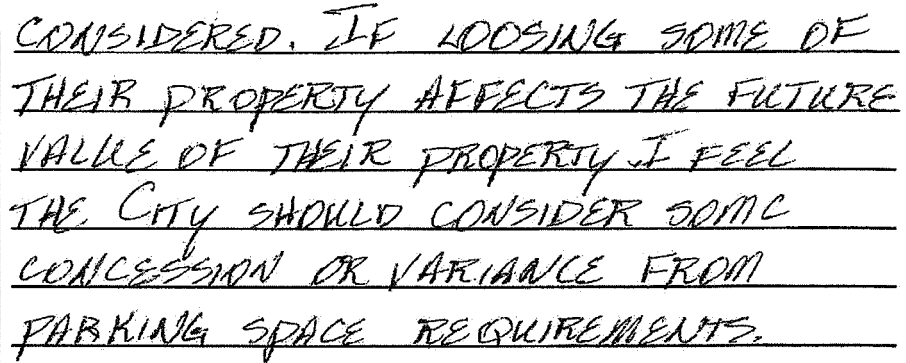 CONSIDERED. IF LOOSING SOME OF
THEIR PROPERTY AFFECTS THE FUTURE
VALUE OF THEIR PROPERTY I FEEL
THE CITY SHOULD CONSIDER SOME
CONCESSION OR VARIANCE FROM
PARKING SPACE REQUIREMENTS.